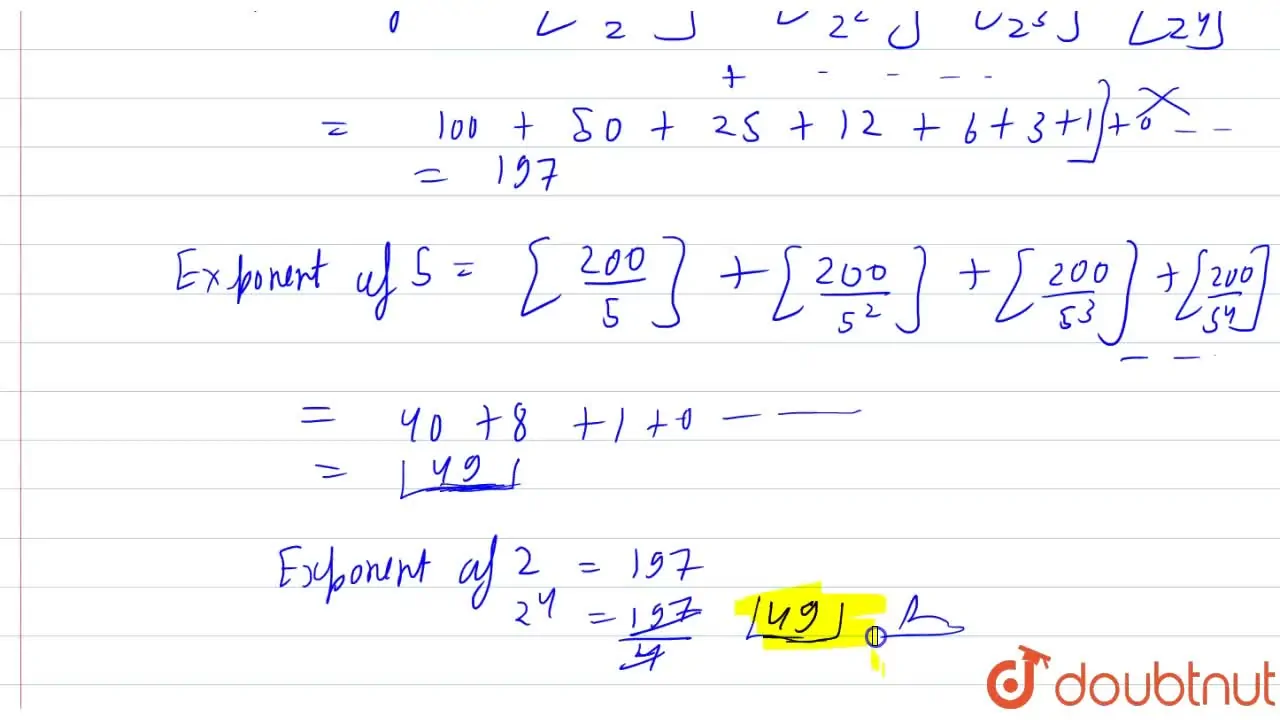 [ 2 ] [ 2² ] [ 2³ ] [2⁴]
+ - - - -
= 100 + 50 + 25 + 12 + 6 + 3 + 1] + 0 - -
= 197
Exponent of 5 = [200/5] + [200/5²] + [200/5³] + [200/5⁴] - -
= 40 + 8 + 1 + 0 - —
= 49
Exponent of 2 = 197
2⁴ = 197/4 49
doubtnut